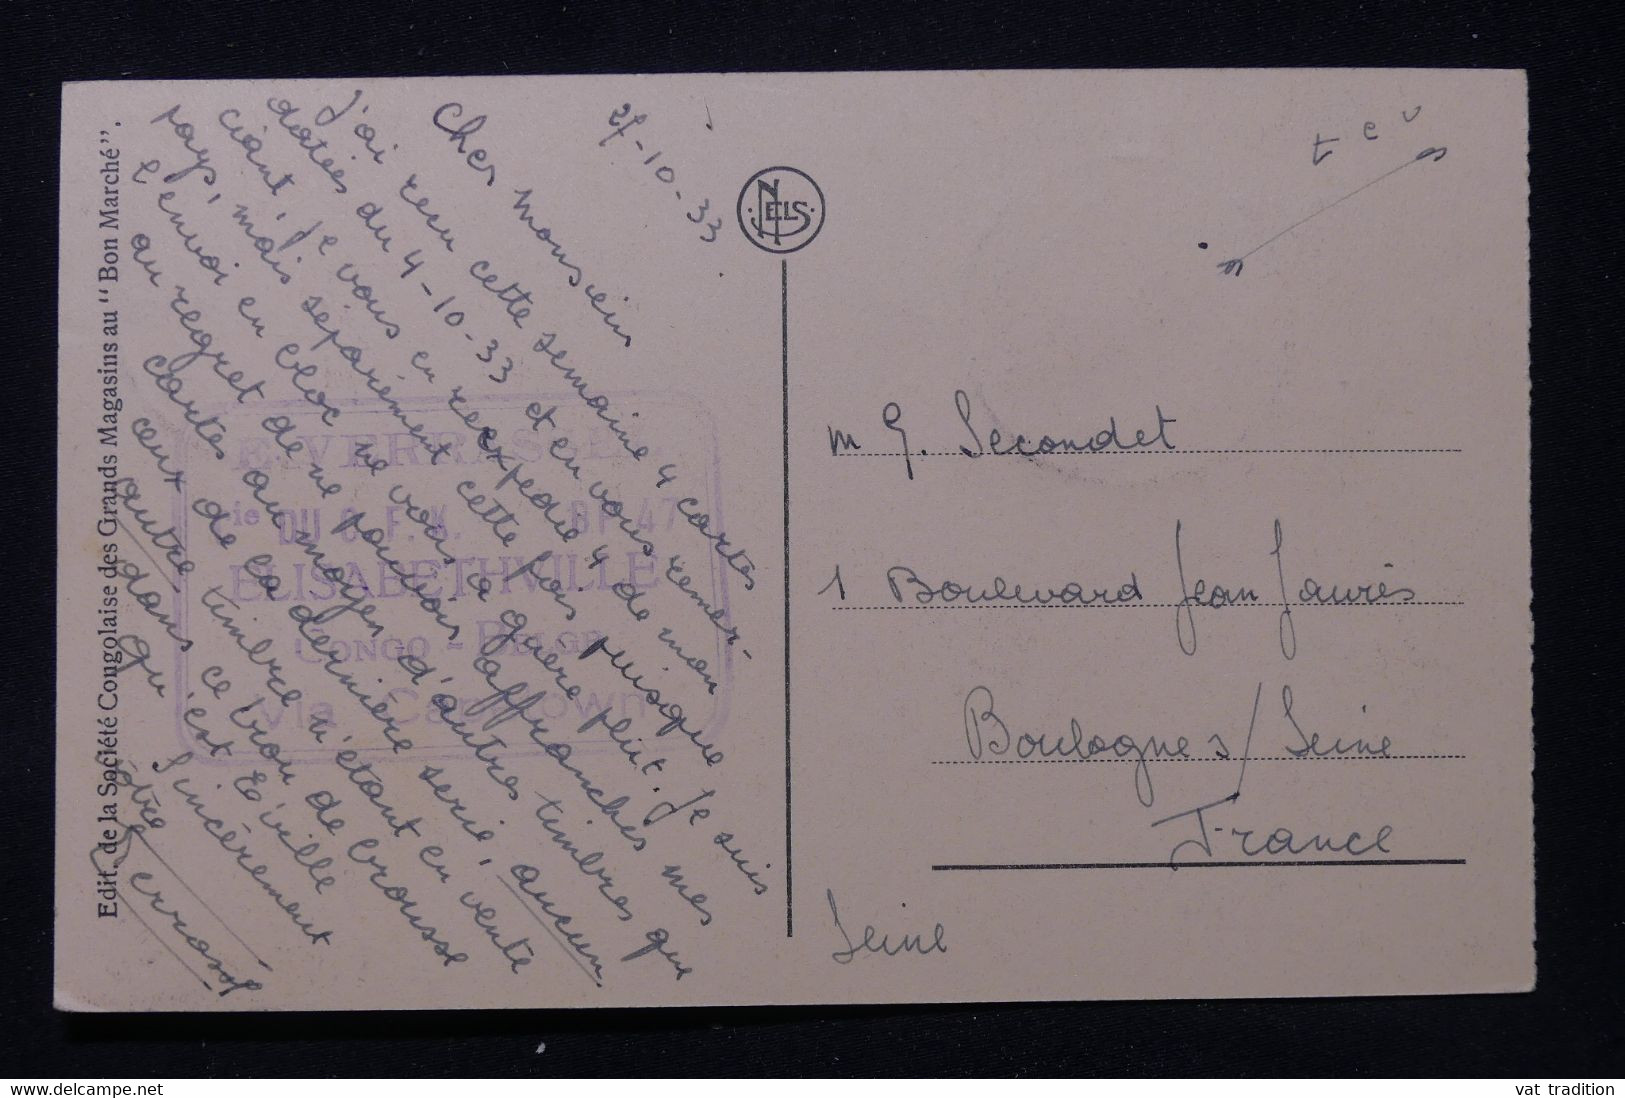 Edit. de la Société Congolaise des Grands Magasins au "Bon Marché".
27-10-33
Cher Monsieur
J'ai recu cette semaine 4 cartes
datées du 4-10-33 et en vous remer-
ciant, je vous en reexpédie 4 de mon
pays, mais séparément cette fois puisque
l'envoi en bloc ne vous a guère plu. Je suis
au regret de ne pouvoir affranchir mes
cartes au moyen d'autres timbres que
ceux de la dernière serie, aucun
autre timbre n'étant en vente
dans ce trou de brousse
qu'est E'ville
Sincèrement
Votre
E. VERRASSEL
Cie DU B.P. 47
ELISABETHVILLE
CONGO - BELGE
Via Capetown
NELS
T C V
M G. Secondet
1 Boulevard Jean Jaurès
Boulogne s/Seine
France
Seine
vat tradition
www.delcampe.net